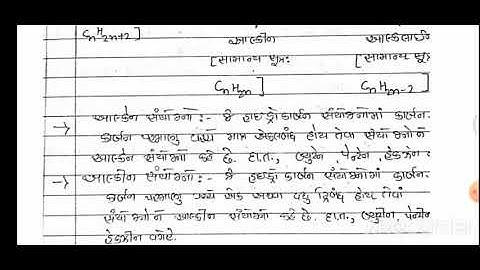 CnH2n+2]
આલ્કીન આલ્કાઈન
[સામાન્ય સૂત્ર: [સામાન્ય સૂત્ર:
CnH2n] CnH2n-2]
→ આલ્કેન સંયોજનો :- જે હાઇડ્રોકાર્બન સંયોજનોમાં કાર્બન-
કાર્બન પરમાણુ વચ્ચે માત્ર એકલબંધ હોય તેવા સંયોજનોને
આલ્કેન સંયોજનો કહે છે. દા.ત., બ્યુટેન, પેન્ટેન, હેકઝેન.
→ આલ્કીન સંયોજનો :- જે હાઇડ્રોકાર્બન સંયોજનોમાં કાર્બન-
કાર્બન પરમાણુ વચ્ચે એક અથવા વધુ દ્વિબંધ હોય તેવાં
સંયોજનોને આલ્કીન સંયોજનો કહે છે. દા.ત., બ્યુટીન, પેન્ટીન
હેકઝીન વગેરે.